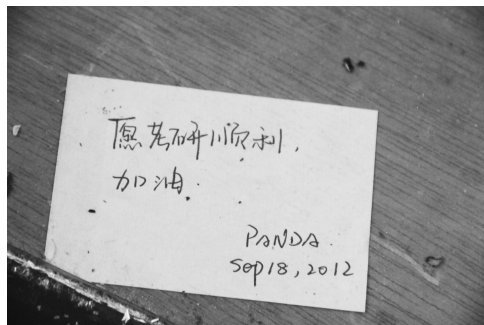 愿考研顺利,
加油.
PANDA.
Sep18,2012